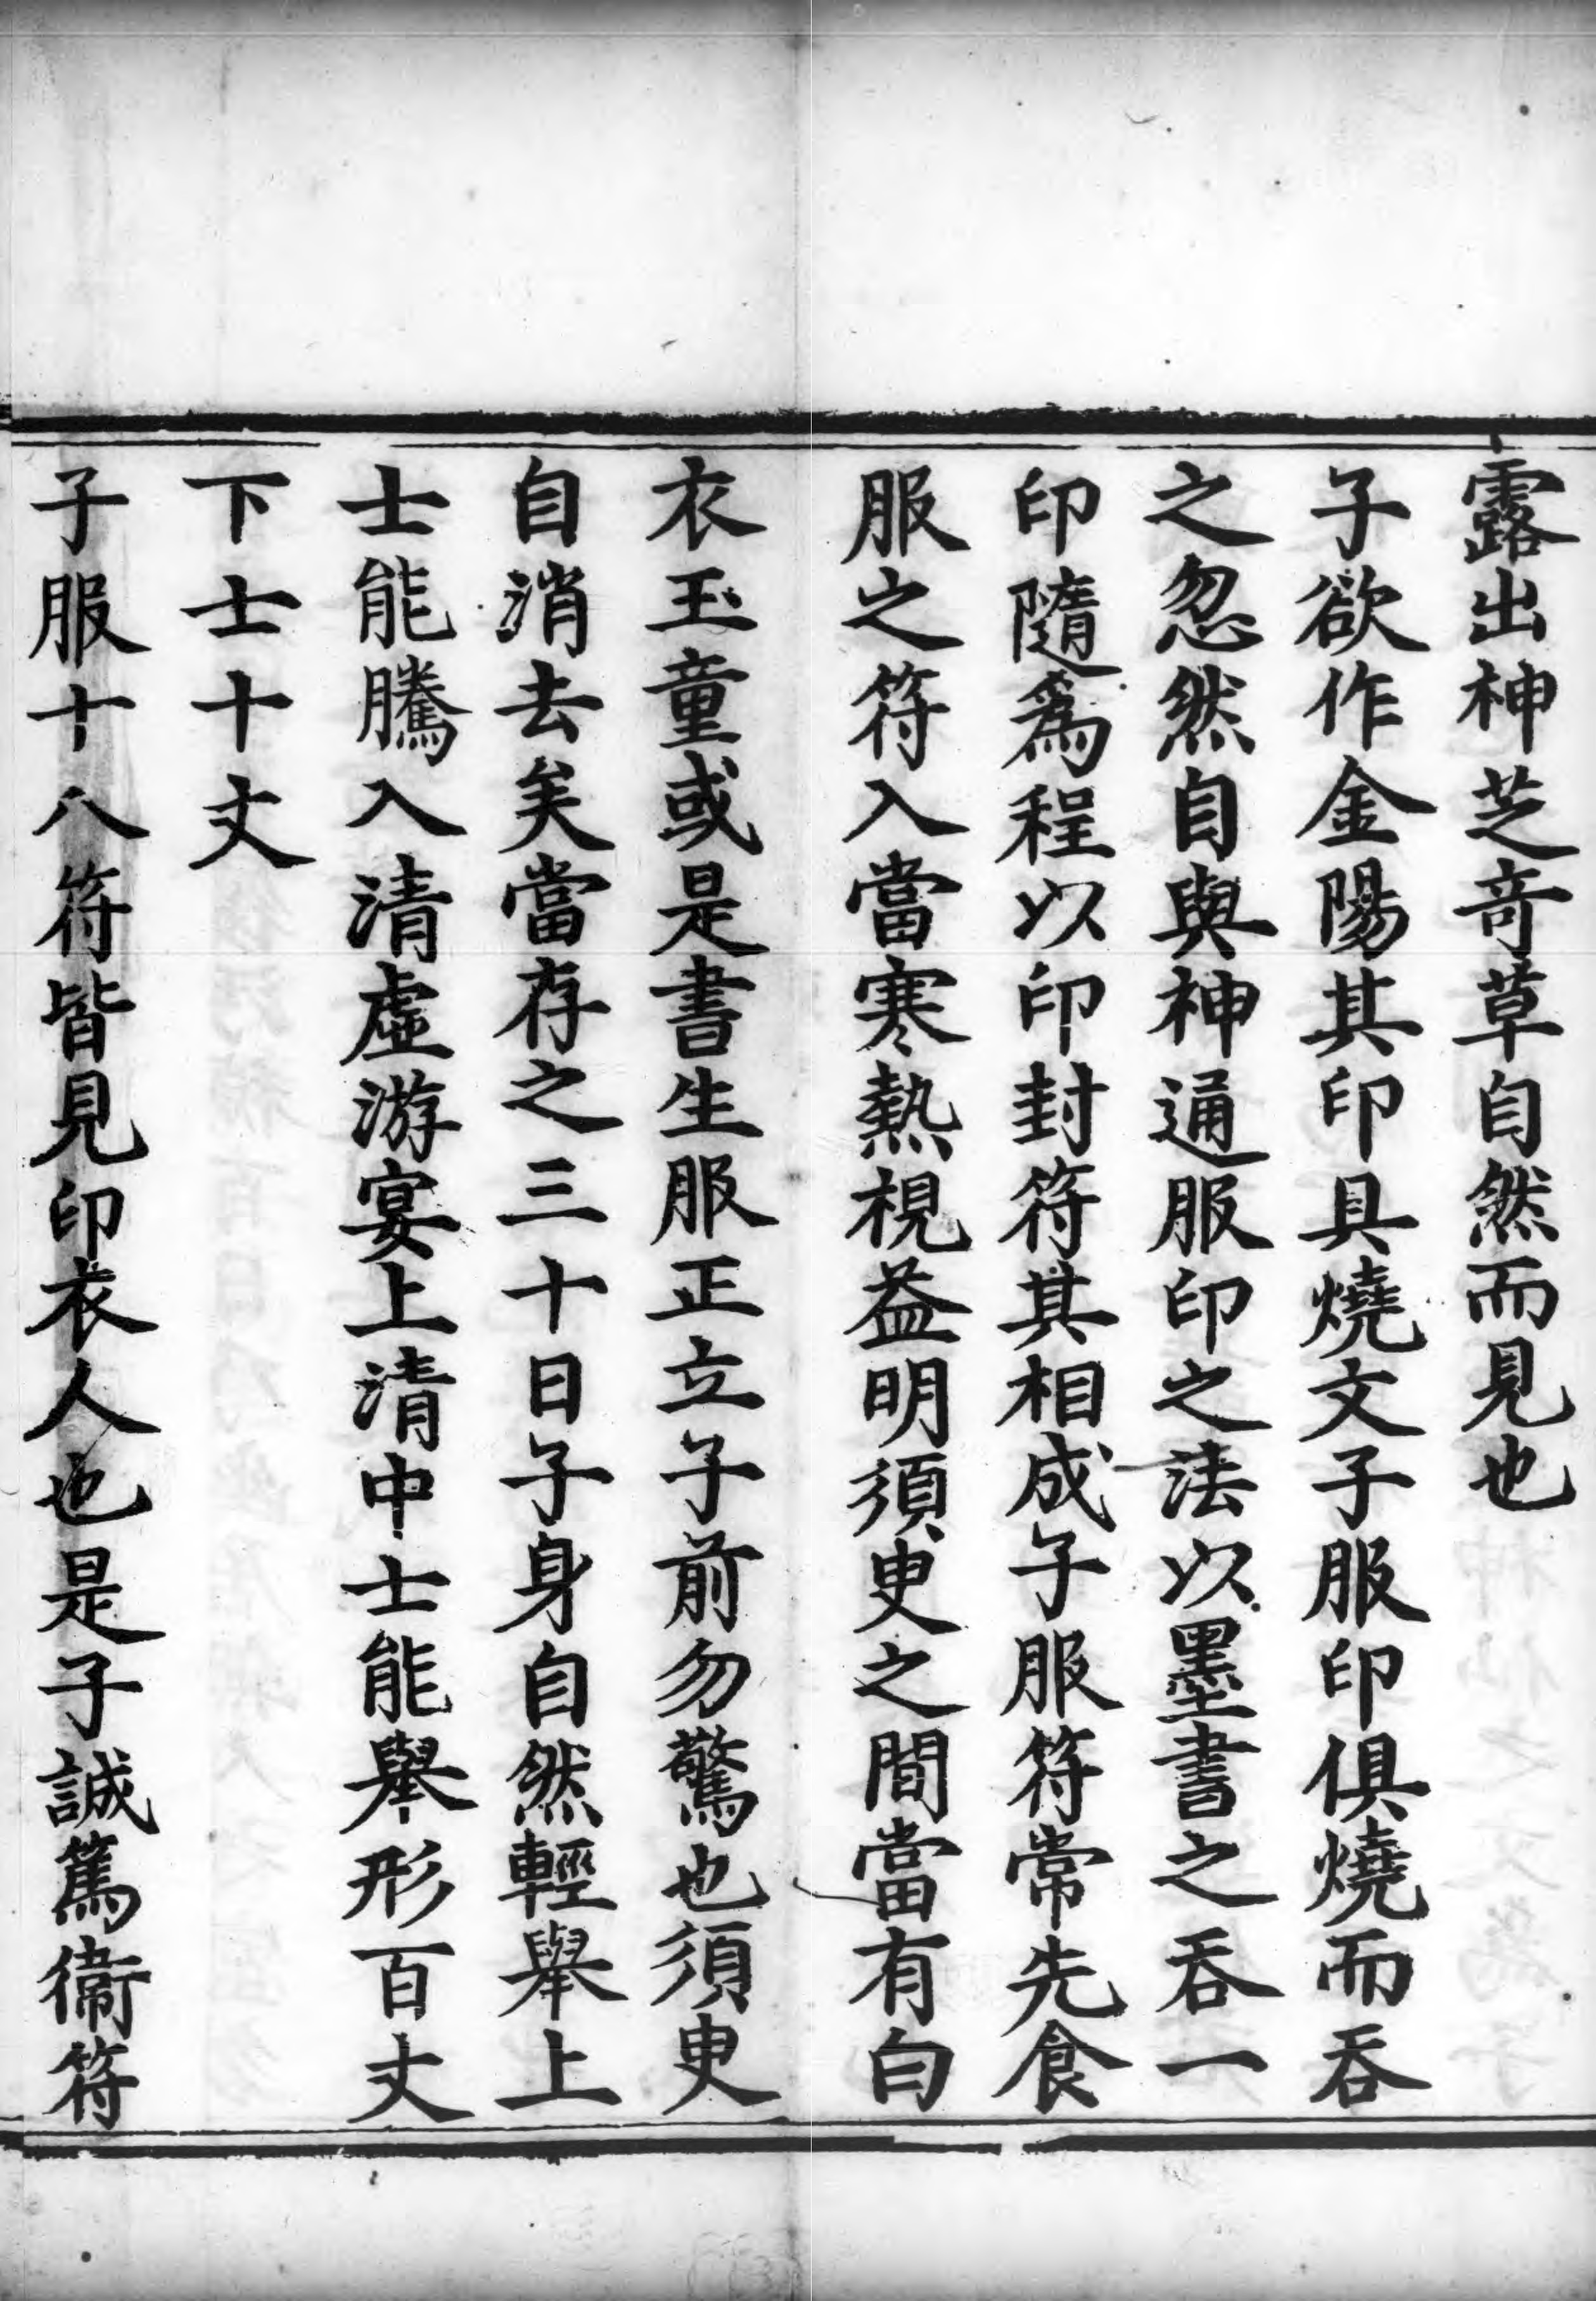 露出神芝竒草自然而見也
子欲作金陽其印具燒文子服印俱燒而吞
之忽然自與神通服印之法以墨書之吞一
印隨爲程以印封符其相成子服符常先食
服之符入當寒熱視益明須臾之間當有白
衣玉童或是書生服正立子前勿驚也須臾
自消去矣當存之三十日子身自然輕舉上
士能騰入清虛游宴上清中士能舉形百丈
下士十丈
子服十八符皆見印衣人也是子誠篤衞符